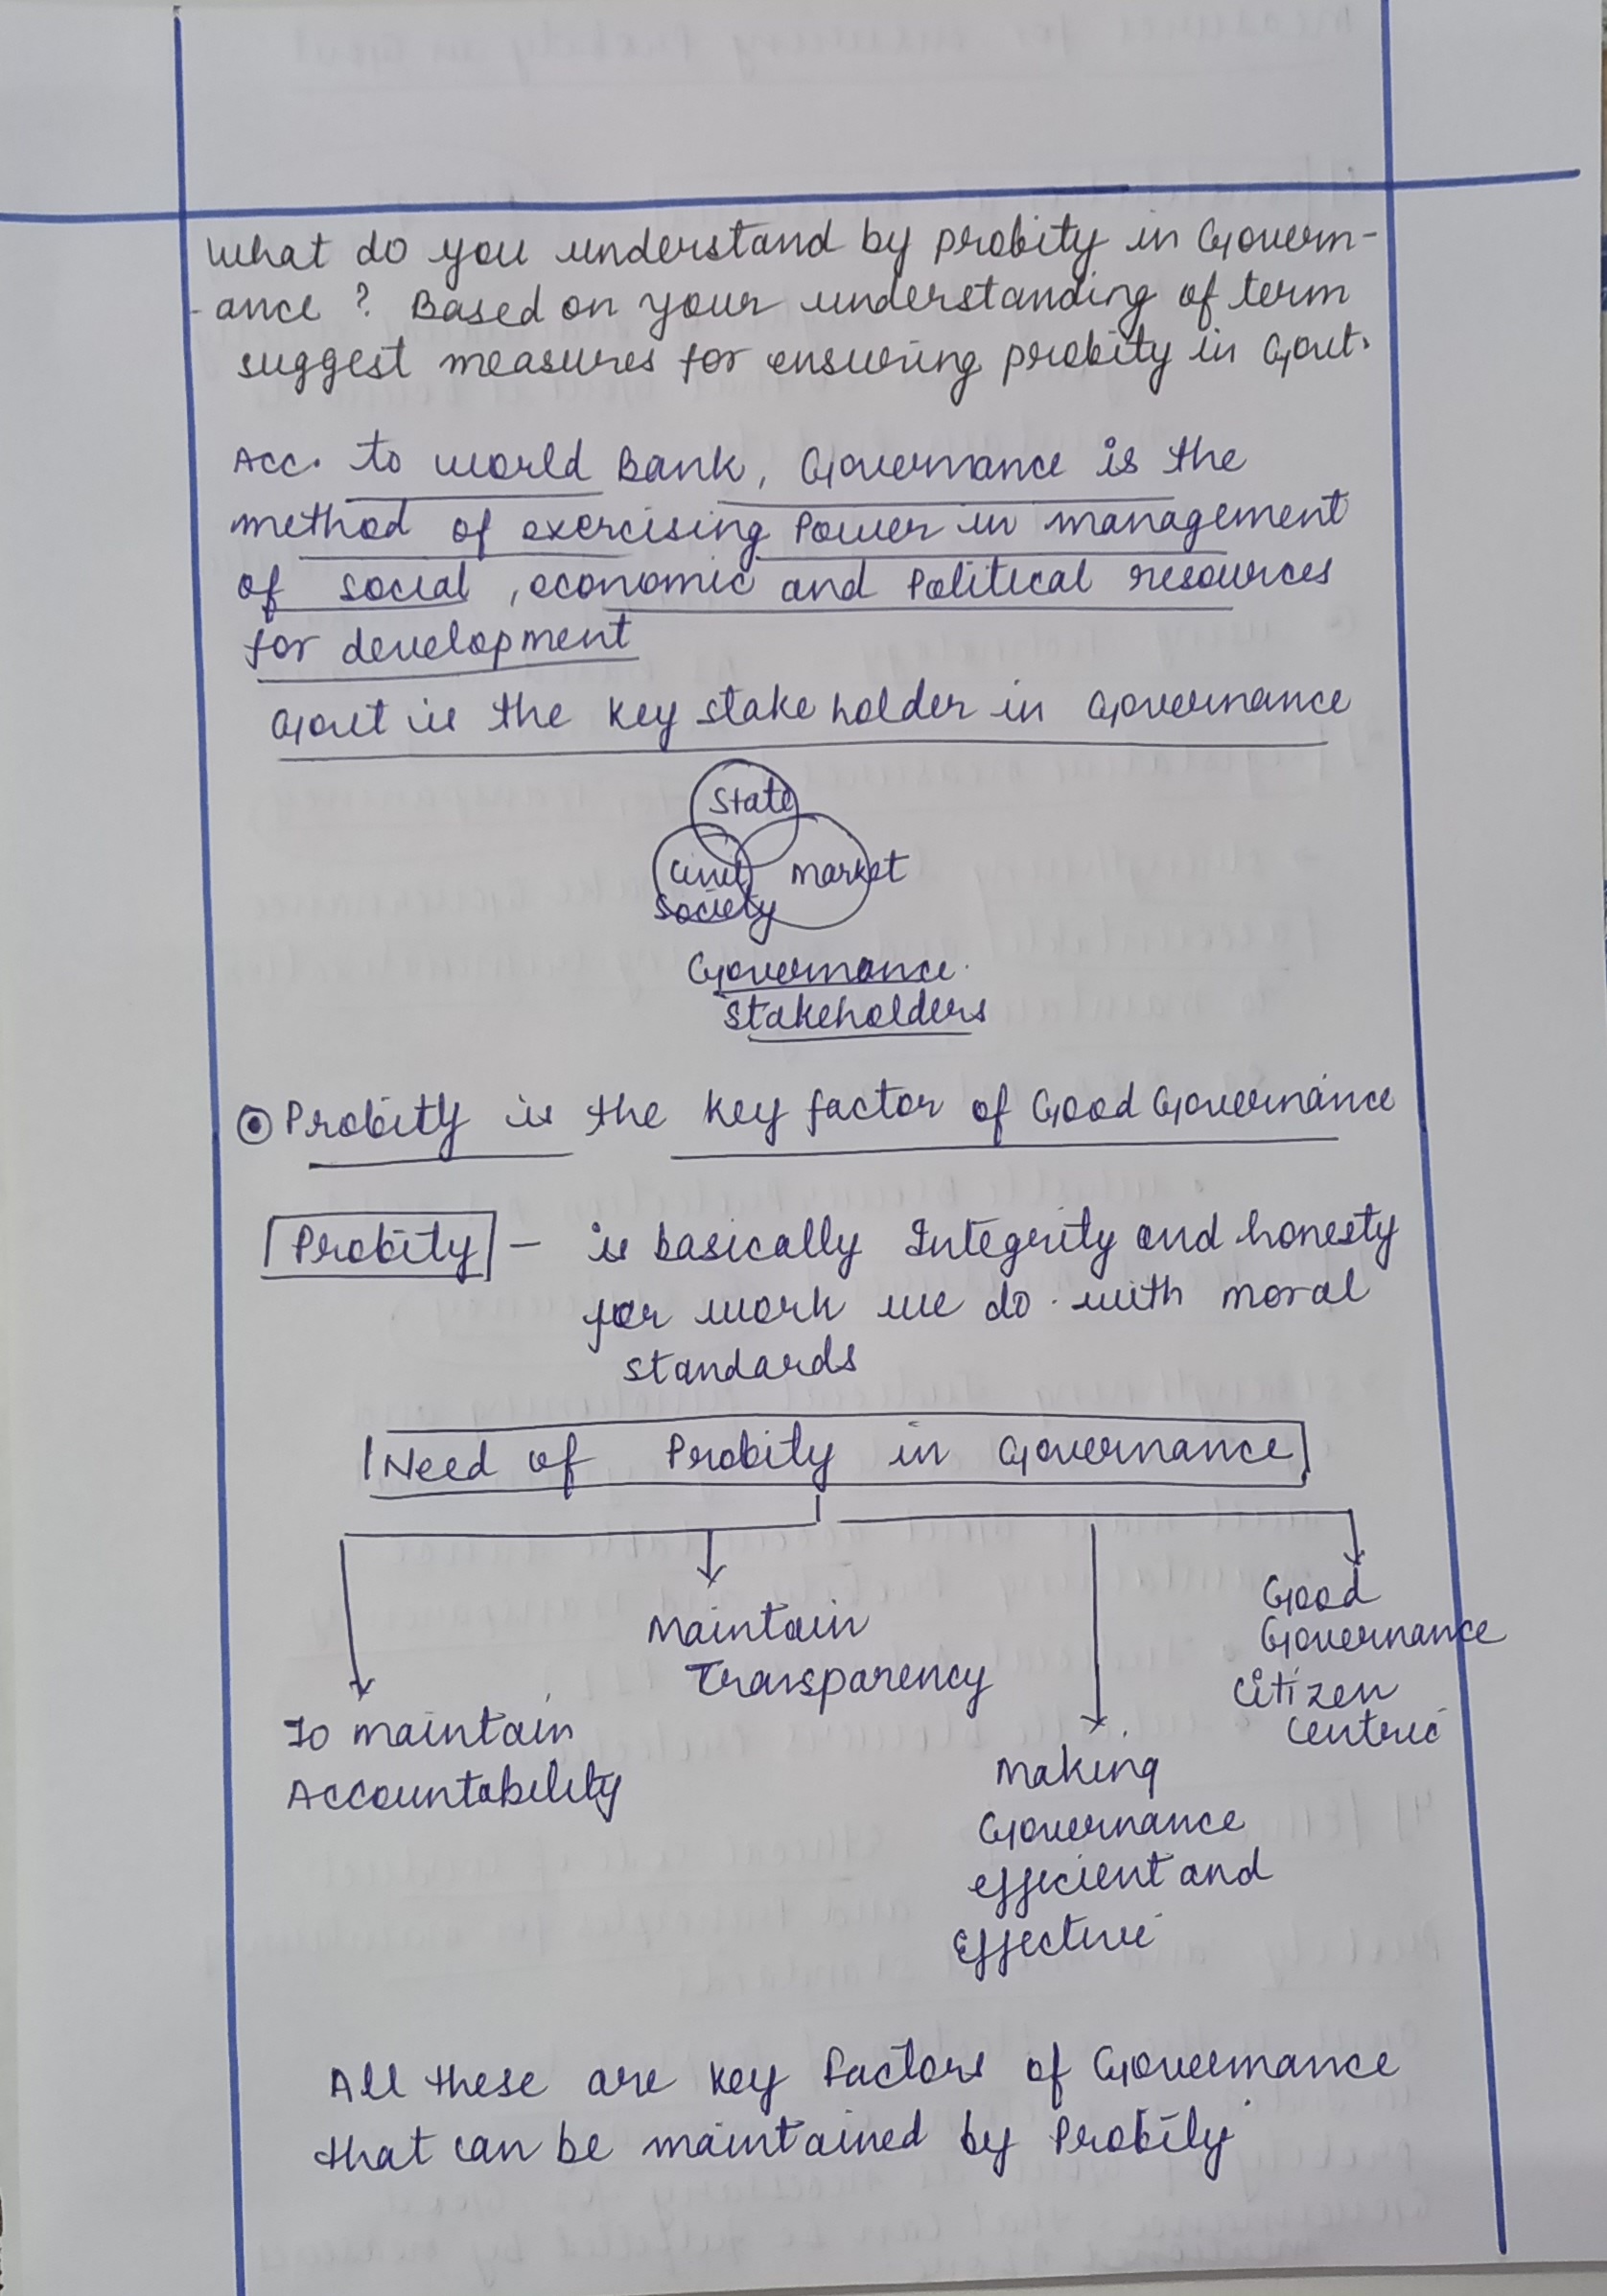 What do you understand by probity in Govern-
-ance ? Based on your understanding of term
suggest measures for ensuring probity in Govt.
Acc. to world Bank, Governance is the
method of exercising Power in management
of social, economic and Political resources
for development
Govt is the key stake holder in Governance
State
Civil
Society
Market
Governance
Stakeholders
Probity is the key factor of Good Governance
Probity - is basically Integrity and honesty
for work we do with moral
standards
Need of Probity in Governance
To maintain
Accountability
Maintain
Transparency
Making
Governance
efficient and
Effective
Good
Governance
Citizen
Centric
All these are key factors of Governance
that can be maintained by Probity